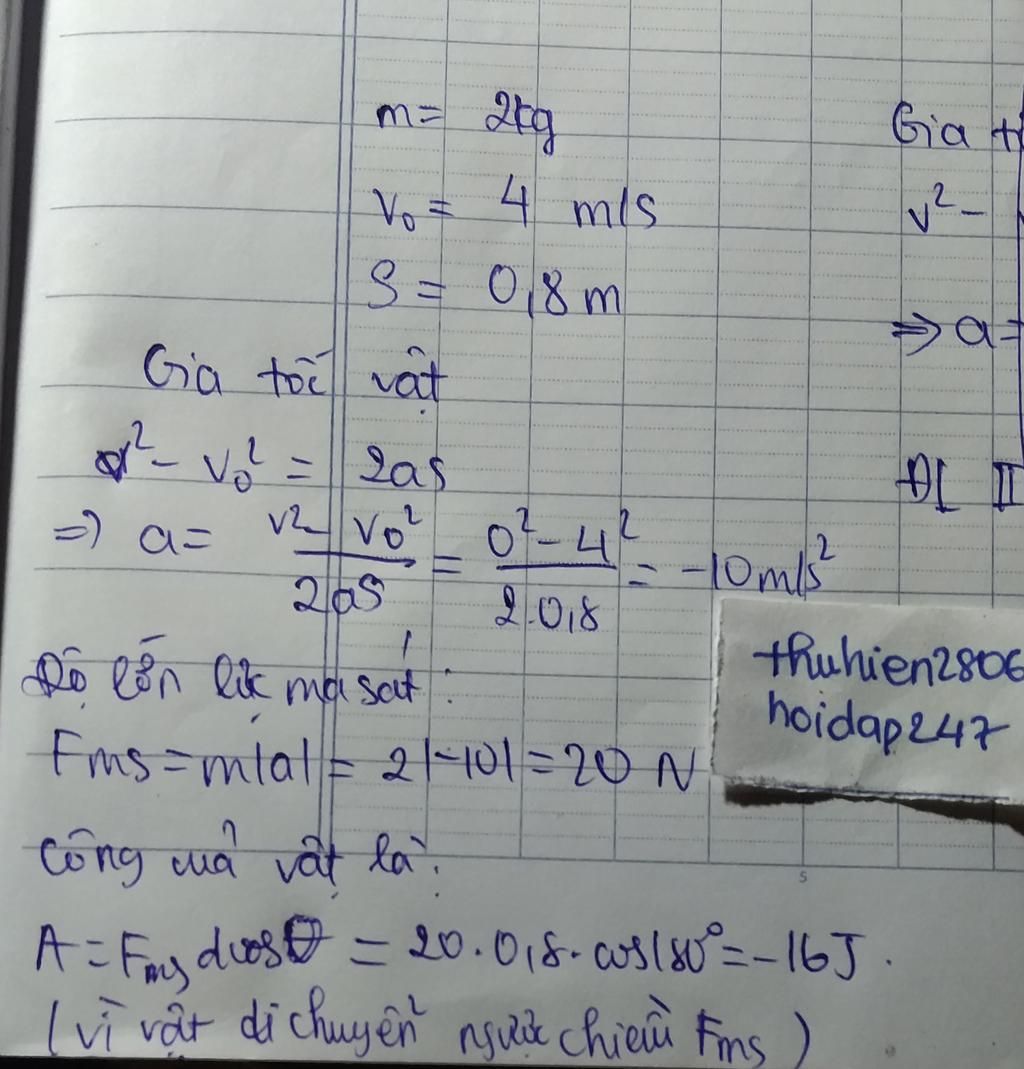 m = 2kg
v₀ = 4 m/s
S = 0,8 m
Gia tốc vật
v² - v₀² = 2as
=> a = (v² - v₀²)/(2as) = (0² - 4²)/(2.0,8) = -10m/s²
Độ lớn lực ma sát :
Fms = m|a| = 2|-10| = 20 N
Công của vật là:
A = Fms d cosθ = 20 . 0,8 . cos180° = -16J .
(vì vật di chuyển ngược chiều Fms)
Gia t
v² -
=> a =
ĐL II
thuhien2806
hoidap247